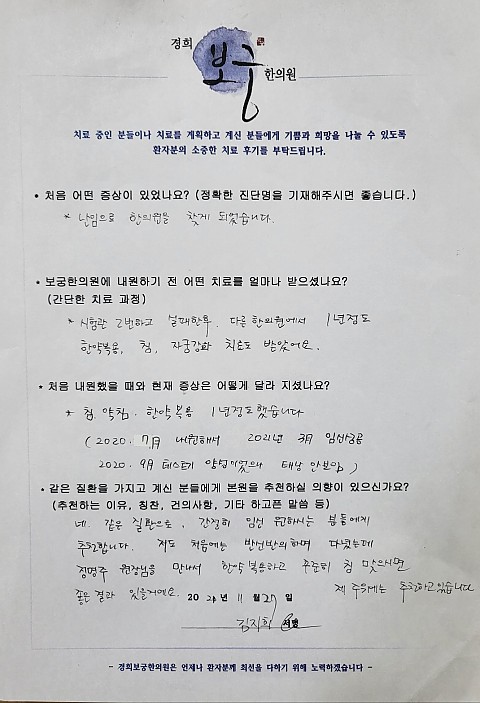 경희 보궁 한의원
치료 중인 분들이나 치료를 계획하고 계신 분들에게 기쁨과 희망을 나눌 수 있도록
환자분의 소중한 치료 후기를 부탁드립니다.
• 처음 어떤 증상이 있었나요? (정확한 진단명을 기재해주시면 좋습니다.)
* 난임으로 한의원을 찾게 되었습니다.
• 보궁한의원에 내원하기 전 어떤 치료를 얼마나 받으셨나요?
(간단한 치료 과정)
* 시험관 2번하고 실패한후. 다른 한의원에서 1년정도
한약복용, 침, 자궁강화 치료도 받았어요.
* 처음 내원했을 때와 현재 증상은 어떻게 달라 지셨나요?
* 침. 약침. 한약 복용 1년정도 했습니다
( 2020. 7월 내원해서 2021년 3월 임신성공
2020. 9월 테스트기 양성이었으나 태낭 안보임 )
* 같은 질환을 가지고 계신 분들에게 본원을 추천하실 의향이 있으신가요?
(추천하는 이유, 칭찬, 건의사항, 기타 하고픈 말씀 등)
네. 같은 질환으로, 간절히 임신 원하시는 분들에게
추천합니다. 저도 처음에는 반신반의하며 다녔는데
정명주 원장님을 만나서 한약 복용하고 꾸준히 침 맞으시면
좋은 결과 있을거예요. 제 주위에는 추천하고있습니다
20 21 년 11 월 27 일
김지희 서명
- 경희보궁한의원은 언제나 환자분께 최선을 다하기 위해 노력하겠습니다 -